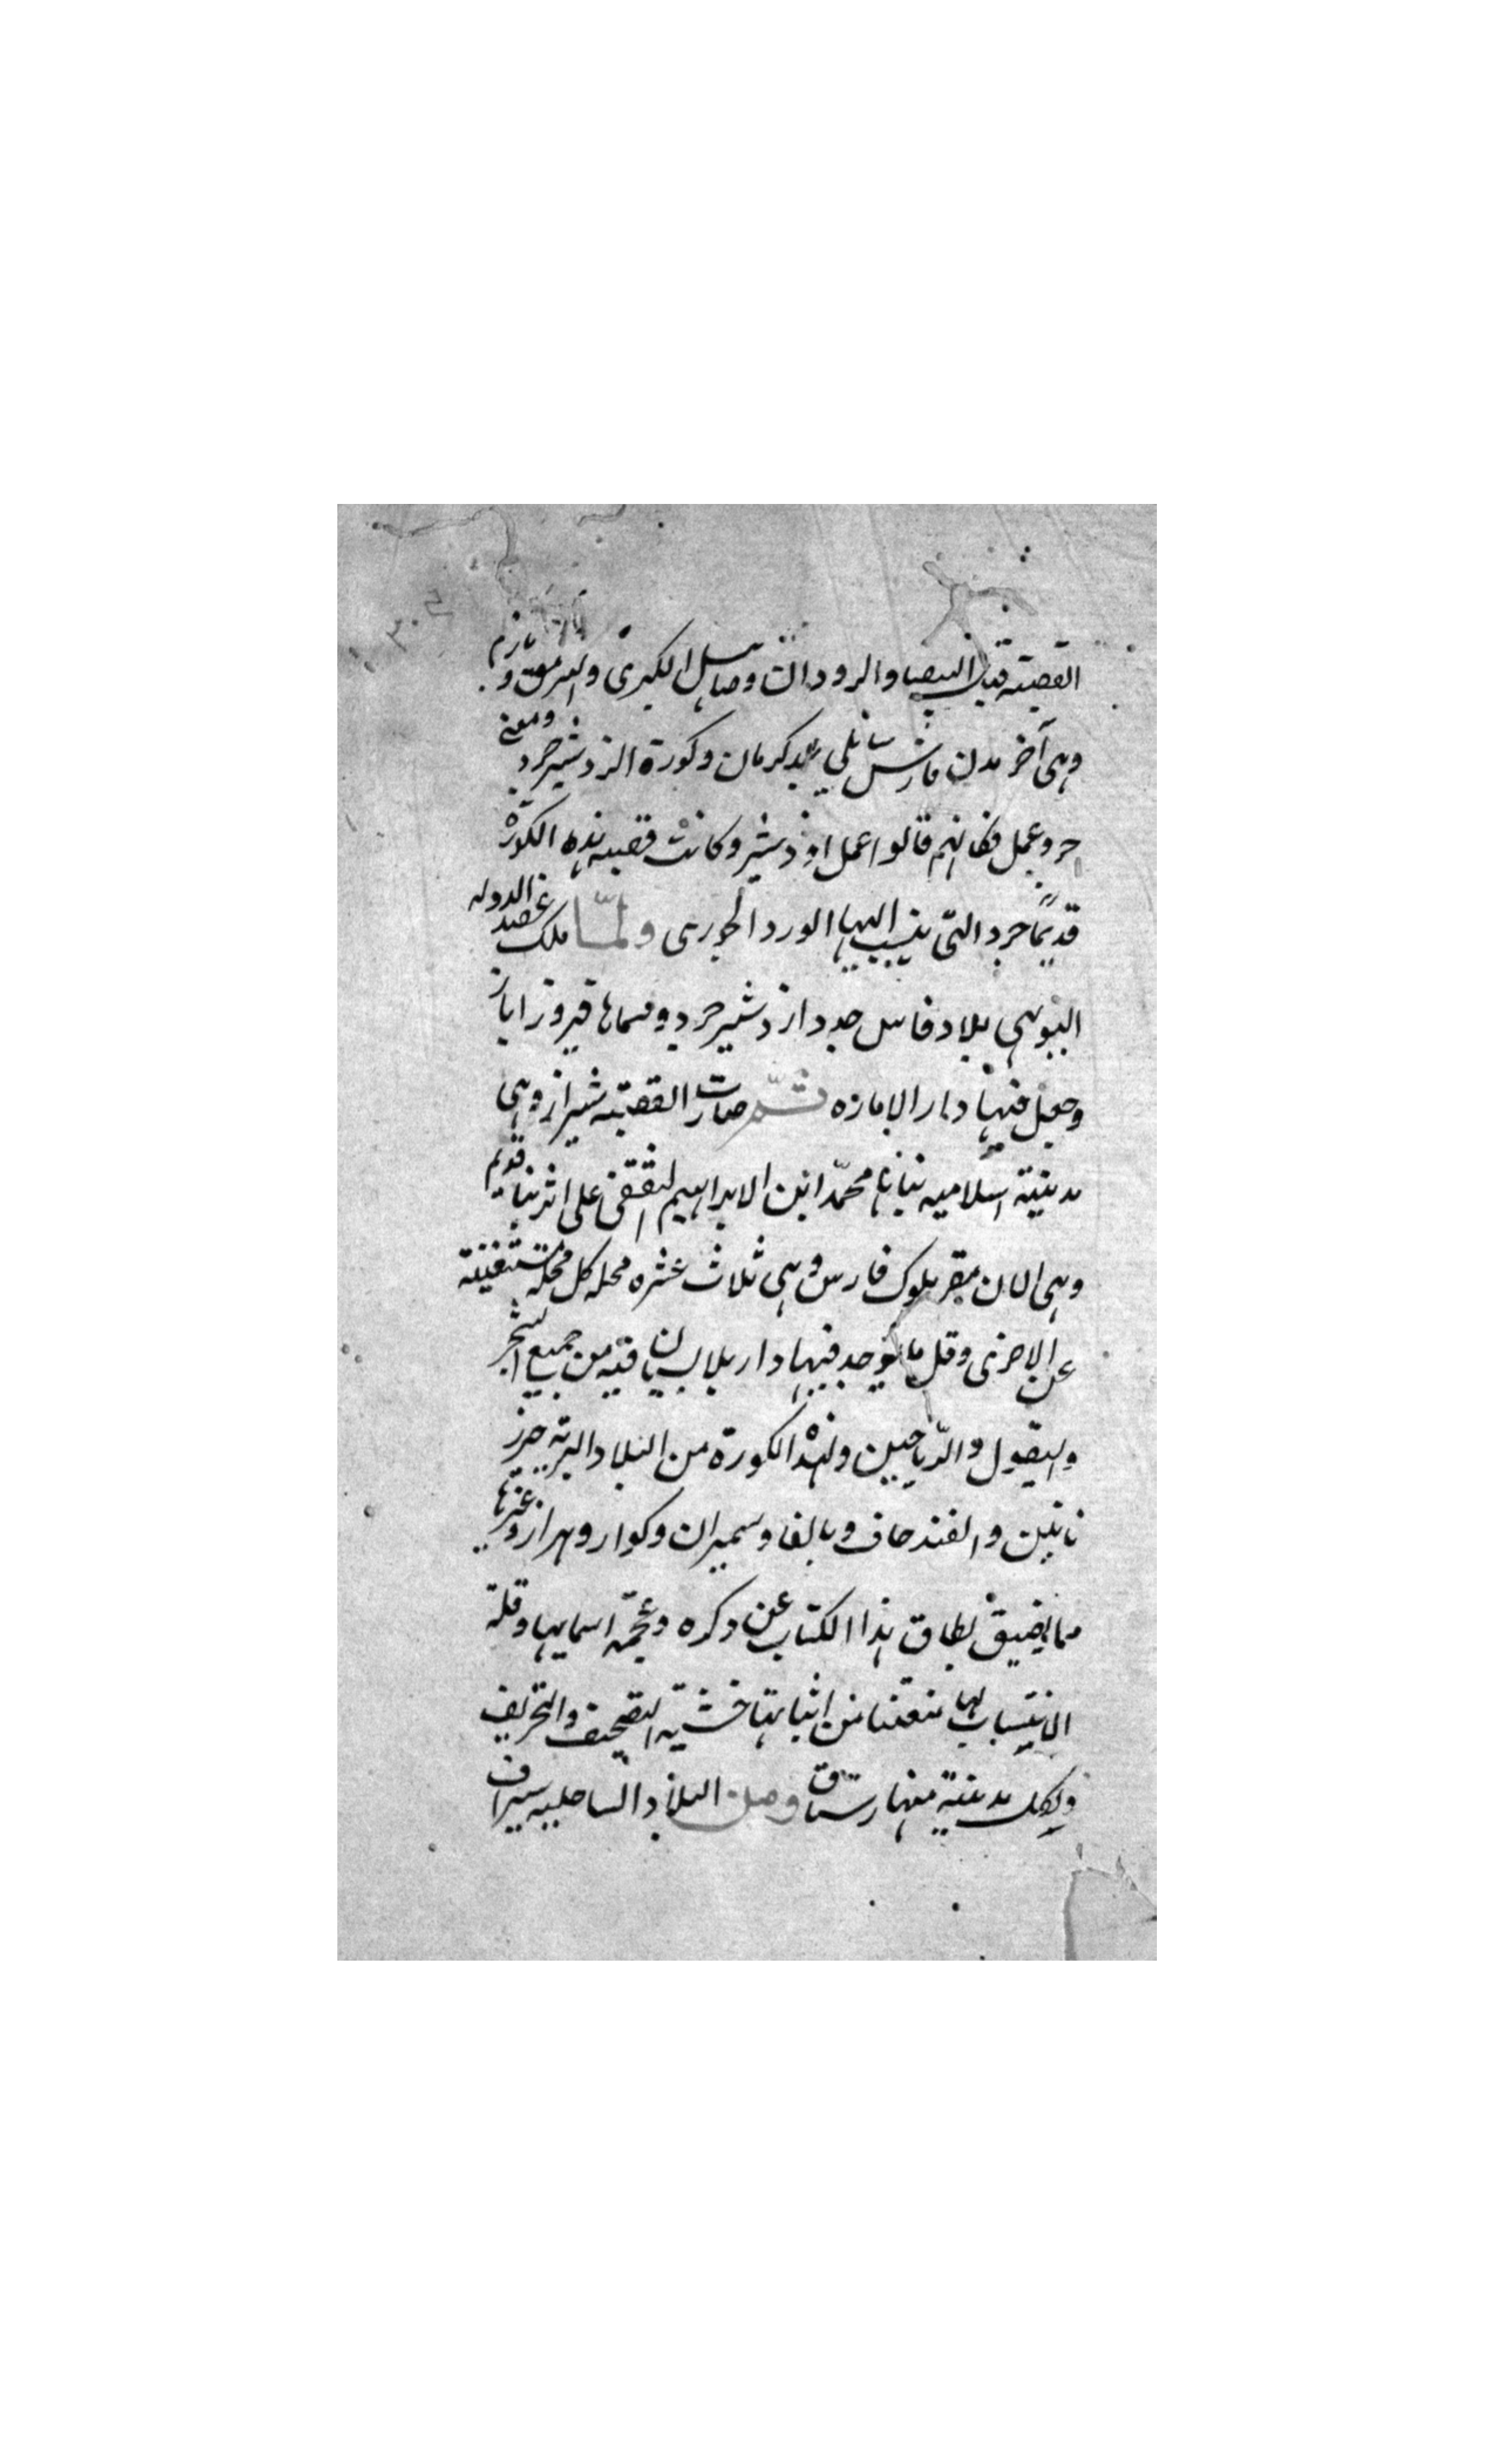 القصبة قبل البيضا والرودان وصاهل الكبرى والهرموق و بازم
وهي آخر مدن فارس مايلي بلد كرمان وكورة ازدشير جرد ومعنى
جرد عمل فكانهم قالوا عمل ازدشير وكانت قصبه هذه الكورة
قديمًا جرد التي ينسب اليها الورد الجوري ولمّا ملك عضد الدوله
البويهي بلاد فارس جدد ازدشير جرد وسماها فيروز اباز
وجعل فيها دار الاماره ثمّ صارت القصبه شيراز وهي
مدينة اسلاميه بناها محمّد ابن الابراهيم الثقفي على اثر بنا قديم
وهي الان مقر ملوك فارس وهي ثلاث عشره محله كل محله مستغنيه
عن الاخرى وقل ما يوجد فيها دار بلا بستان فيه من جميع الشجر
والبقول والرّياحين ولهذه الكورة من البلاد البريه
نابين والفندحان و وسميران وكوار وهراز وغيرها
مما يضيق نطاق هذا الكتاب عن ذكره وعجمة اسمايها وقلة
الانتساب لها منعتنا من اثباتها خشية التصحيف والتحريف
ولكل مدينة منها رستاق ومن البلاد الساحليه سيراف